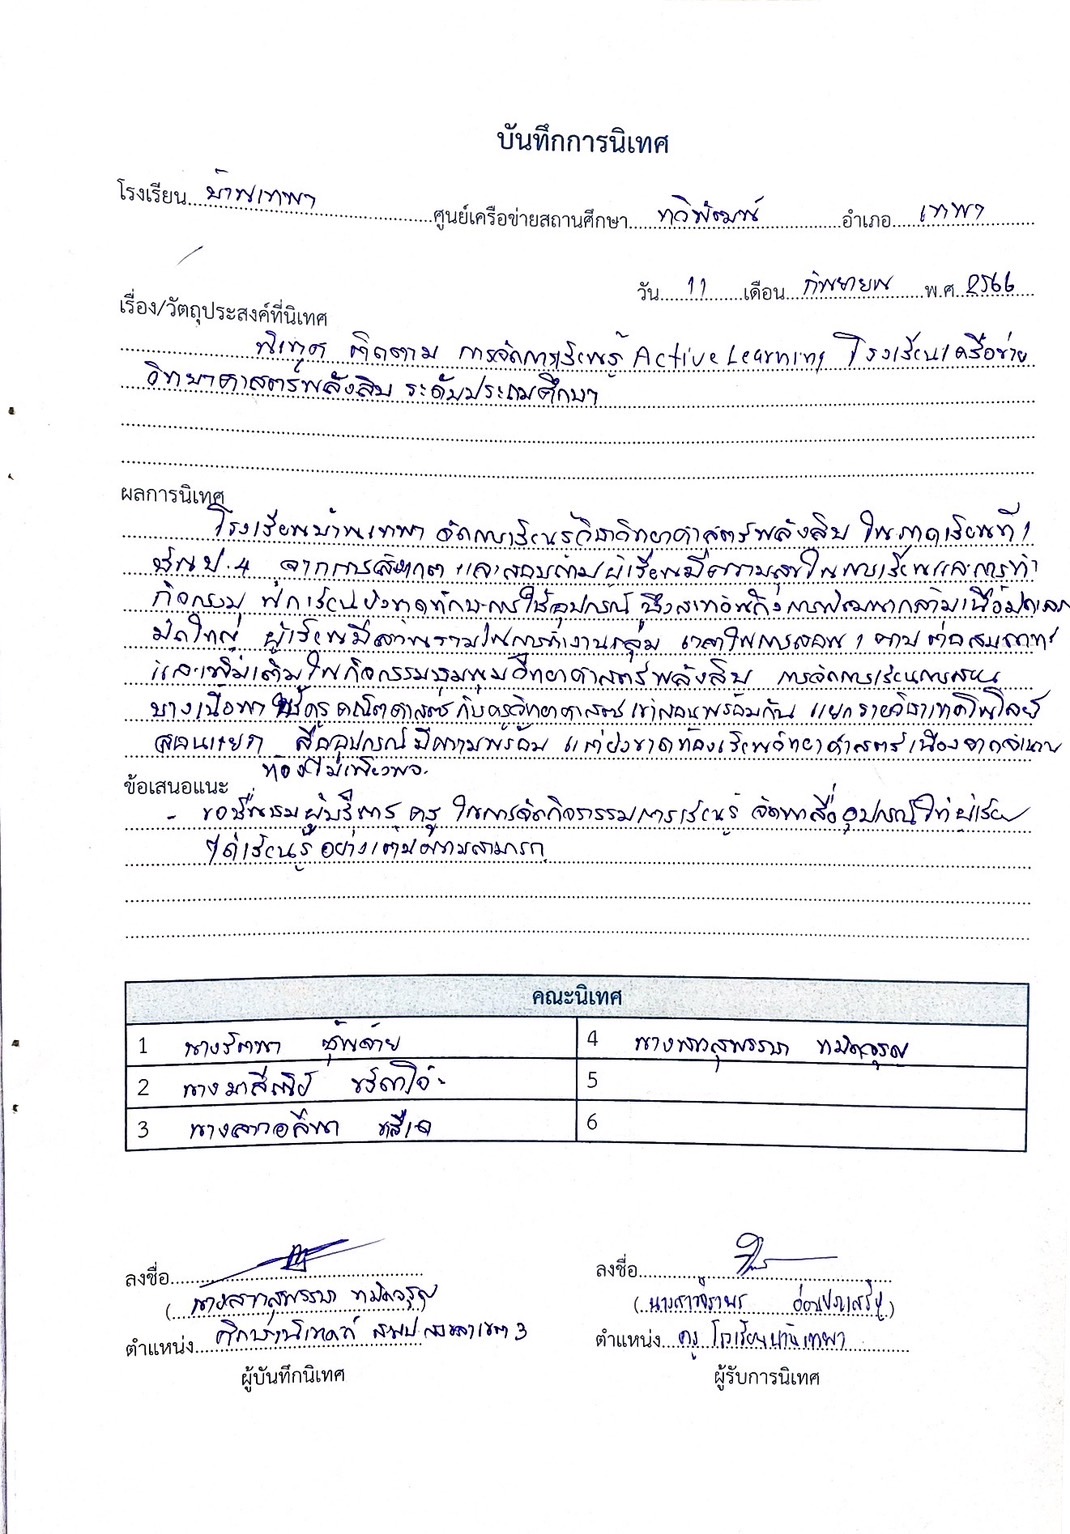 บันทึกการนิเทศ
โรงเรียน บ้านเทพา ศูนย์เครือข่ายสถานศึกษา ทวิพัฒน์ อำเภอ เทพา
วัน 11 เดือน กันยายน พ.ศ. 2566
เรื่อง/วัตถุประสงค์ที่นิเทศ
นิเทศ ติดตาม การจัดการเรียนรู้ Active Learning โรงเรียนเครือข่าย
วิทยาศาสตร์พลังสิบ ระดับประถมศึกษา
ผลการนิเทศ
โรงเรียนบ้านเทพา จัดการเรียนรู้วิชาวิทยาศาสตร์พลังสิบ ในภาคเรียนที่ 1
ชั้น ป.4 จากการสังเกต และสอบถามผู้เรียนมีความสุขในการเรียนและการทำ
กิจกรรม นักเรียนยังขาดทักษะการใช้อุปกรณ์ ซึ่งสะท้อนถึงการพัฒนากล้ามเนื้อมัดเล็ก
มัดใหญ่ ผู้เรียนมีส่วนร่วมในการทำงานกลุ่ม เวลาในการสอน 1 คาบ ต่อสัปดาห์
และเพิ่มเติมในกิจกรรมชุมนุมวิทยาศาสตร์พลังสิบ การจัดการเรียนการสอน
บางเนื้อหา ใช้ครูคณิตศาสตร์กับครูวิทยาศาสตร์เข้าสอนพร้อมกัน แยกรายวิชาเทคโนโลยี
สอนแยก สื่ออุปกรณ์มีความพร้อม แต่ยังขาดห้องเรียนวิทยาศาสตร์เนื่องจากจำนวน
ห้องไม่เพียงพอ
ข้อเสนอแนะ
- ขอชื่นชมผู้บริหาร ครู ในการจัดกิจกรรมการเรียนรู้ จัดหาสื่ออุปกรณ์ให้ผู้เรียน
ได้เรียนรู้อย่างเต็มความสามารถ
คณะนิเทศ
1 นางรัตนา 4
2 นาง 5
3 นางสาวอลีนา 6
ลงชื่อ ลงชื่อ
(นางสาวสุพรรษา ) (นางสาวจิราพร )
ตำแหน่ง ศึกษานิเทศก์ สพป.สงขลา เขต 3 ตำแหน่ง ครู โรงเรียนบ้านเทพา
ผู้บันทึกนิเทศ ผู้รับการนิเทศ